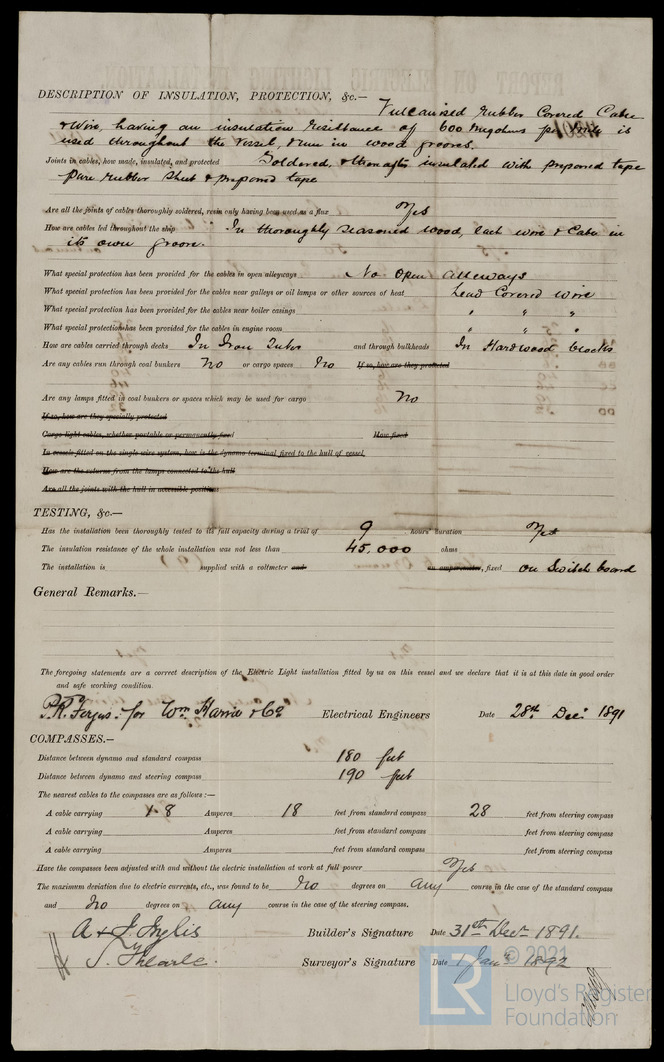 DESCRIPTION OF INSULATION, PROTECTION, &c.— Vulcanised Rubber Covered Cable
& Wire, having an insulation resistance of 600 Megohms per is
used throughout the vessel, & run in wood grooves.
Joints in cables, how made, insulated, and protected Soldered, & thereafter insulated with prepared tape
pure rubber sheet & prepared tape
Are all the joints of cables thoroughly soldered, resin only having been used as a flux Yes
How are cables led throughout the ship In thoroughly seasoned wood, each wire & cable in
its own groove.
What special protection has been provided for the cables in open alleyways No open alleways
What special protection has been provided for the cables near galleys or oil lamps or other sources of heat Lead Covered wire
What special protection has been provided for the cables near boiler casings " " "
What special protection has been provided for the cables in engine room " " "
How are cables carried through decks In Iron Tubes and through bulkheads In Hardwood blocks
Are any cables run through coal bunkers No or cargo spaces No If so, how are they protected
Are any lamps fitted in coal bunkers or spaces which may be used for cargo No
If so, how are they specially protected
Cargo light cables, whether portable or permanently fixed How fixed
In vessels fitted on the single wire system, how is the dynamo terminal fixed to the hull of vessel
How are the returns from the lamps connected to the hull
Are all the joints with the hull in accessible positions
TESTING, &c.—
Has the installation been thoroughly tested to its full capacity during a trial of 9 hours' duration Yes
The insulation resistance of the whole installation was not less than 45,000 ohms
The installation is supplied with a voltmeter and an amperemeter, fixed on Switch board
General Remarks.—
The foregoing statements are a correct description of the Electric Light installation fitted by us on this vessel and we declare that it is at this date in good order
and safe working condition.
P.R. Fergus: for Wm Harvie & Co Electrical Engineers Date 28th Decr 1891
COMPASSES.—
Distance between dynamo and standard compass 180 feet
Distance between dynamo and steering compass 190 feet
The nearest cables to the compasses are as follows:—
A cable carrying 1.8 Amperes 18 feet from standard compass 28 feet from steering compass
A cable carrying Amperes feet from standard compass feet from steering compass
A cable carrying Amperes feet from standard compass feet from steering compass
Have the compasses been adjusted with and without the electric installation at work at full power Yes
The maximum deviation due to electric currents, etc., was found to be No degrees on any course in the case of the standard compass
and No degrees on any course in the case of the steering compass.
A & J Inglis Builder's Signature Date 31st Decr 1891.
J. Thearle. Surveyor's Signature Date 1 Jany 1892
© 2021
LR
Lloyd's Register
Foundation